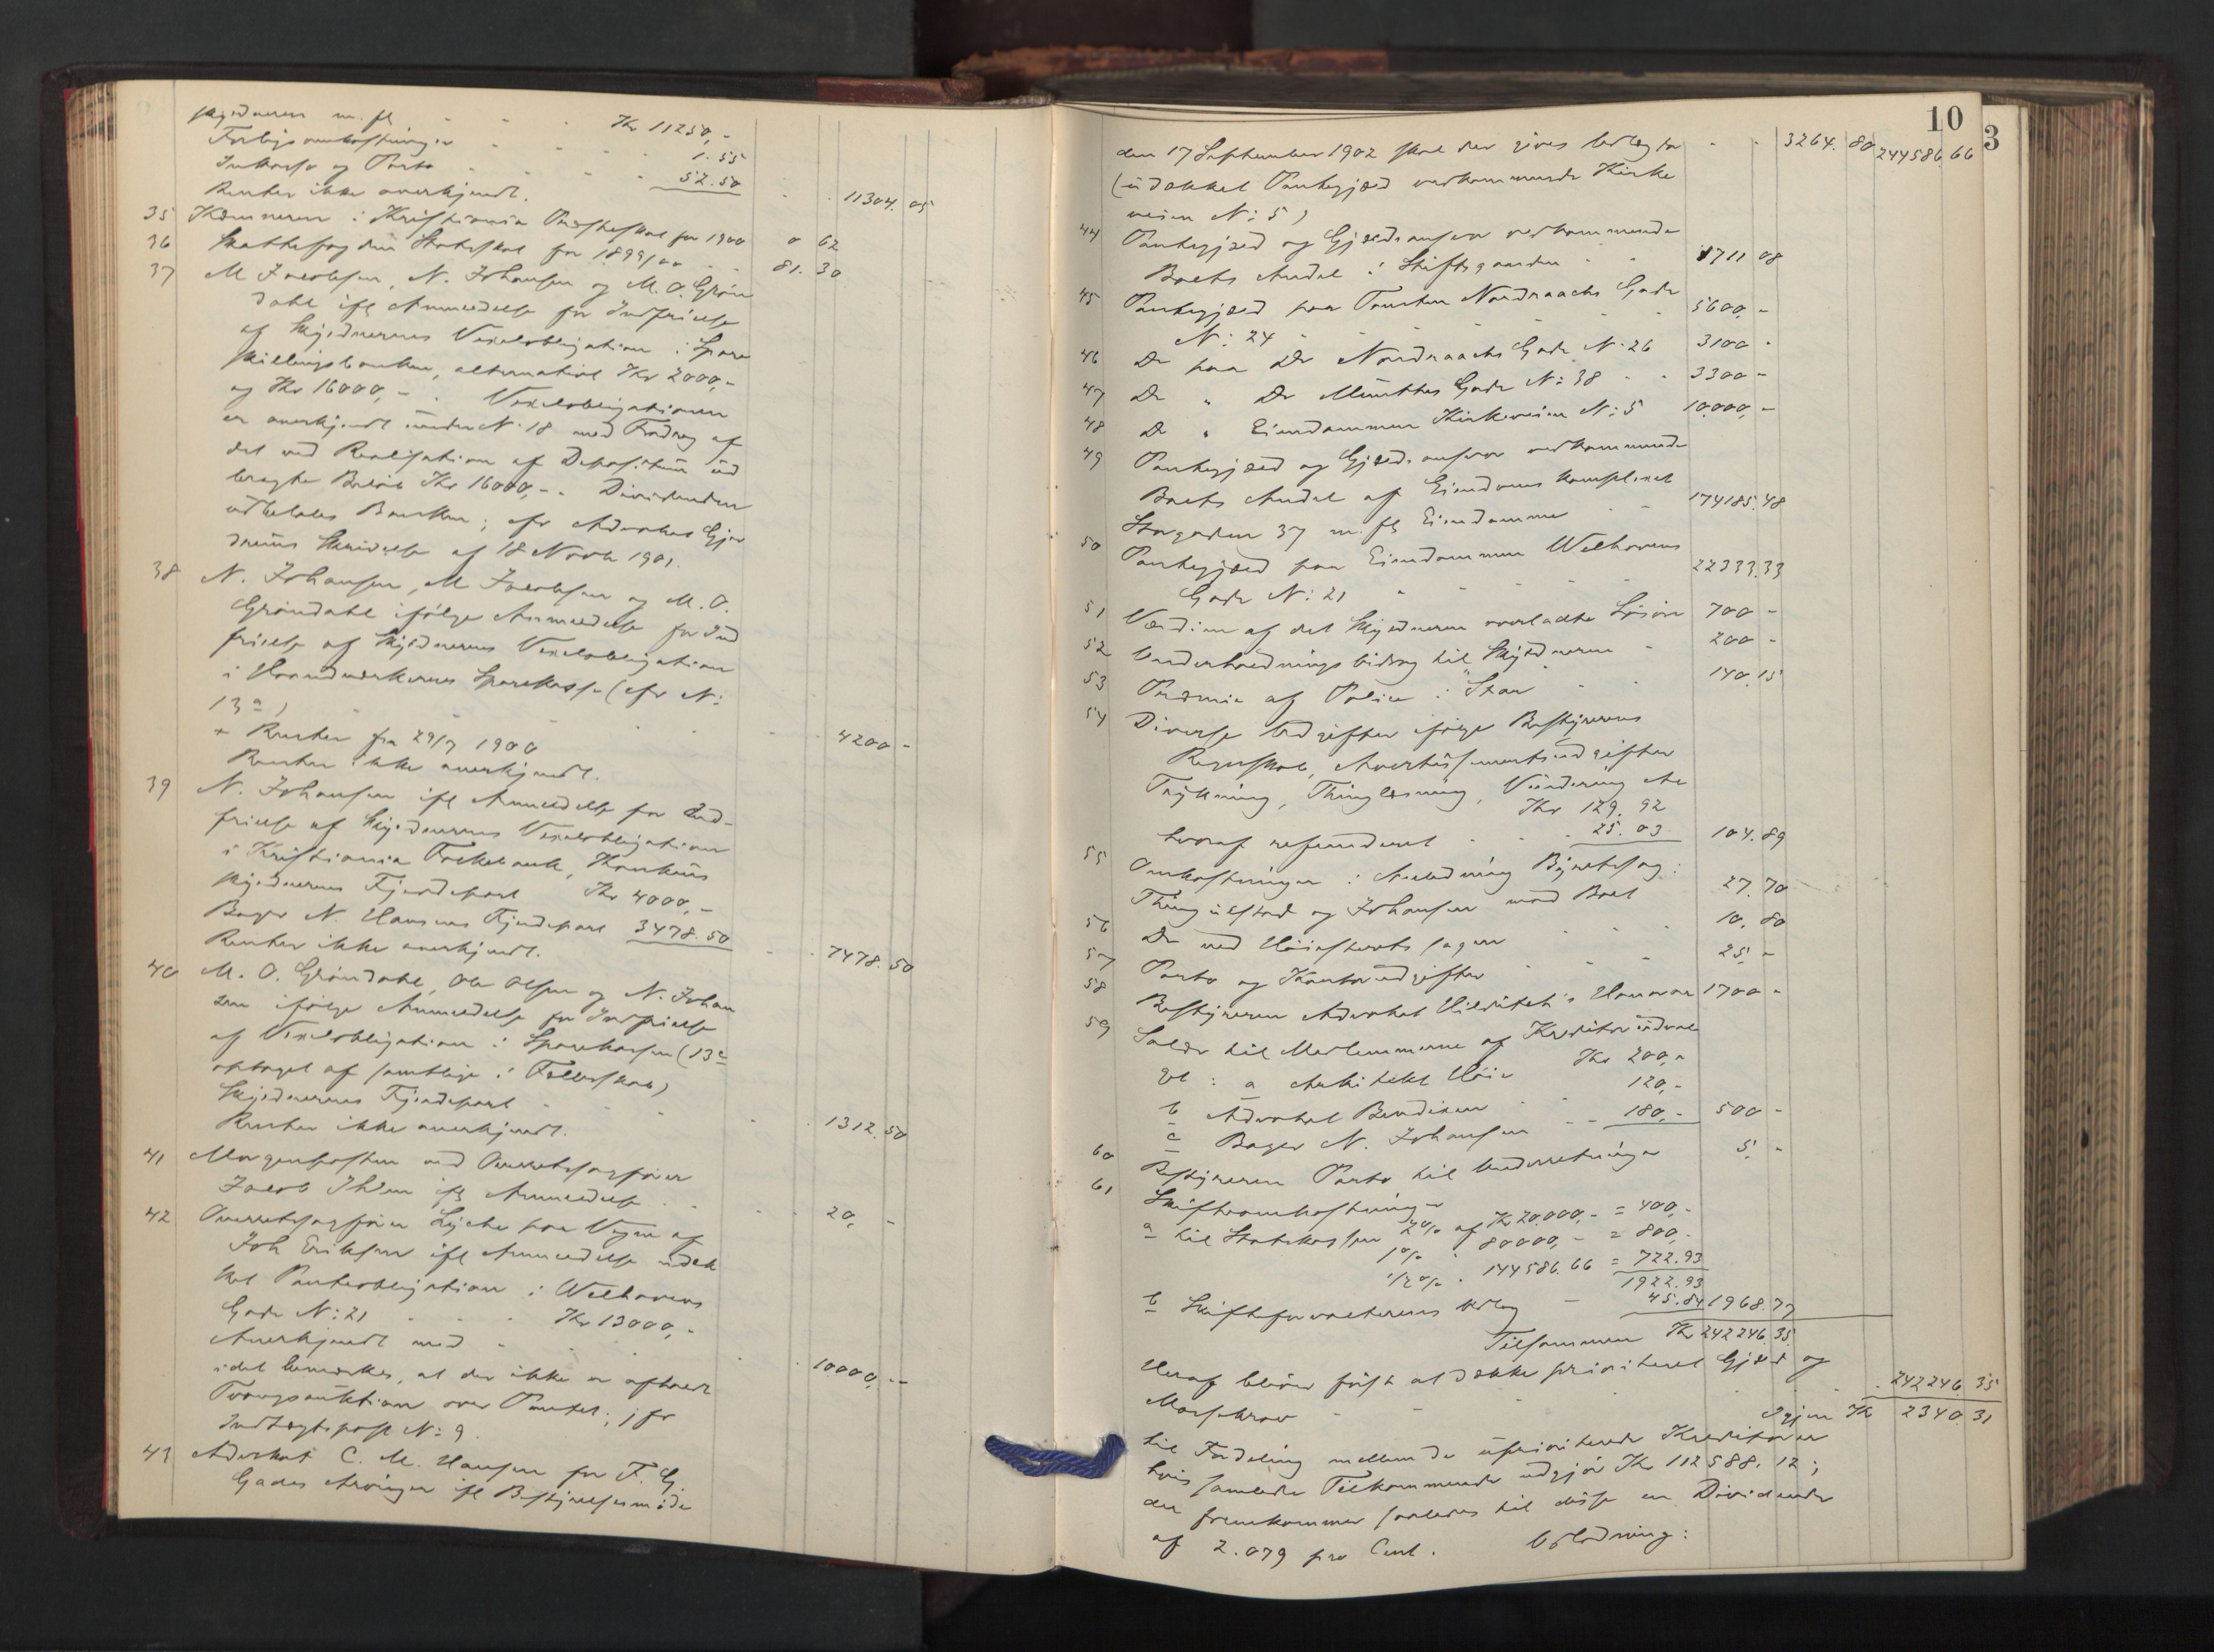 Skyldneren m. fl. Kr 11250,-
Forligsomkostninger 1.55
Inkasso og Porto 52.50
Renter ikke anerkjendt. 11304.05
35 Kæmneren i Kristiania Præsteskat for 1900 0 62
36 Skattefogden Statsskat for 1899/00 81.30
37 M Jacobsen, N. Johansen og M. O. Grøn
dahl ifl Anmeldelse for Indfrielse
af Skyldnerens Vexelobligation i Spare
skillingsbanken, alternativt Kr 2000,-
og Kr 16000,- . Vexelobligationen
er anerkjendt under N: 18 med Fradrag af
det ved Realisation af Depositum ud
bragte Beløb Kr 16000,-. Dividenden
udbetales Banken; cfr Advokat Gjer
drums Skrivelse af 18 Novb 1901.
38 N. Johansen, M Jacobsen og M. O.
Grøndahl ifølge Anmeldelse for Ind
frielse af Skyldnerens Vexelobligation
i Haandværkernes Sparekasse (cfr N:
13 a)
+ Renter fra 29/7 1900 4200 -
Renter ikke anerkjendt.
39 N. Johansen ifl Anmeldelse for Ind-
frielse af Skyldnerens Vexelobligation
i Kristiania Folkebank,
Skyldnerens Fjerdepart Kr 4000,-
Bager N. Hansens Fjerdepart 3478.50
Renter ikke anerkjendt. 7478.50
40 M. O. Grøndahl, Ole Olsen og N. Johan
sen ifølge Anmeldelse for Indfrielse
af Vexelobligation i Sparekassen (13 c
optaget af samtlige i Fællesskab)
Skyldnerens Fjerdepart
Renter ikke anerkjendt. 1312.50
41 Morgenposten ved Overretssagfører
Jacob Ihlen ifl Anmeldelse 20, -
42 Overretssagfører Lyche paa Vegne af
Joh Eriksen ifl Anmeldelse udæk
ket Panteobligation i Welhavens
Gade N: 21 Kr 13000,-
Anerkjendt med
idet bemærkes, at der ikke er afholdt 10000,--
Tvangsauktion over Pantet; jfr
Indtægtspost N: 9.
43 Advokat C. M. Hansen for F. G.
Gades Arvinger ifl Bestyrelsesmøde
10
3
den 17 September 1902 skal der gives Udlæg for 3264.80 244586.66
(udækket Pantegjæld vedkommende Kirke
veien N: 5)
44 Pantegjæld og Gjældsansvar vedkommende
Boets Andel i Skiftsgaarden 1711 08
45 Pantegjæld paa Tomten Nordraachs Gade
N: 24 5600, -
46 Do paa Do Nordraachs Gade N: 26 3100 -
47 Do " Do Munthes Gade N: 38 3300 -
48 Do " Eiendommen Kirkeveien N: 5 10.000, -
49 Pantegjæld og Gjældsansvar vedkommende
Boets Andel af Eiendomskomplexet
Storgaden 37 m. fl Eiendomme 174185.48
50 Pantegjæld paa Eiendommen Welhavens
Gade N: 21 22333.33
51 Værdien af det Skyldneren overladte Løsøre 700 -
52 Underholdningsbidrag til Skyldneren 200 -
53 Præmie af Police i "Star" 140.15
54 Diverse Udgifter ifølge Bestyrerens
Regnskab, Avertissementsudgifter
Trykning, Thinglæsning, Vurdering etc
Kr 129.92
hvoraf refunderet 25.03 104.89
55 Omkostninger i Anledning Byretssag:
Thingulstad og Johansen mod Boet 27.70
56 Do ved Høiesterets sagen 10.80
57 Porto og Kontorudgifter 25, -
58 Bestyreren Advokat Hilditch's Honorar 1700 -
59 Salær til Medlemmerne af Kreditorudval
get: a Arkitekt Höie Kr 200,-
b Advokat Bendixen 120,-
c Bager N. Johansen 180,- 500 -
60 Bestyreren Porto til Underretninger 5, -
61 Skifteomkostninger
a til Statskassen 2% af Kr 20.000,- = 400,-
1% " 80000,- = 800,-
1/2% " 144586.66 = 722.93
1922.93
b Skifteforvalterens Udlæg 45.84 1968.77
Tilsammen Kr 242246 35
Heraf bliver først at dække prioriteret Gjæld og
Massekrav 242246 35
Igjen Kr 2340.31
til Fordeling mellem de uprioriterede Kreditorer
hvis samlede Tilkommende udgjör Kr 112588.12;
der fremkommer saaledes til disse en Dividende
af 2.079 pro Cent. Udlodning: